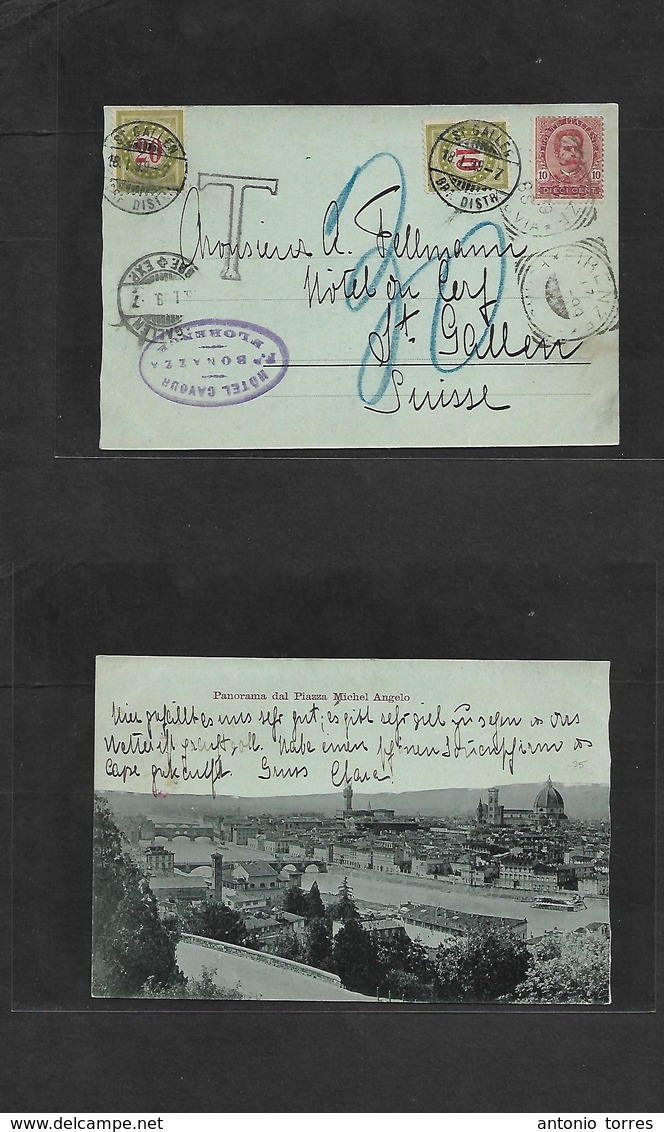 ST. GALLEN
20
BRF. DISTR.
ST. GALLEN
10
18.I.99-7
BRF. DISTR.
POSTE ITALIANE
10 10
DIECI CENT.
T
30
Monsieur A. Fellmann
Hôtel du Cerf
St. Gallen
Suisse
FIRENZE
HÔTEL CAVOUR
BONAZZA
FLORENCE
Panorama dal Piazza Michel Angelo
Hier gefällt es uns sehr gut, es gibt sehr viel zu sehen das
Wetter ist prachtvoll. Habe einen schönen
Cape gekauft. Gruss Clara!
25
antonio torres